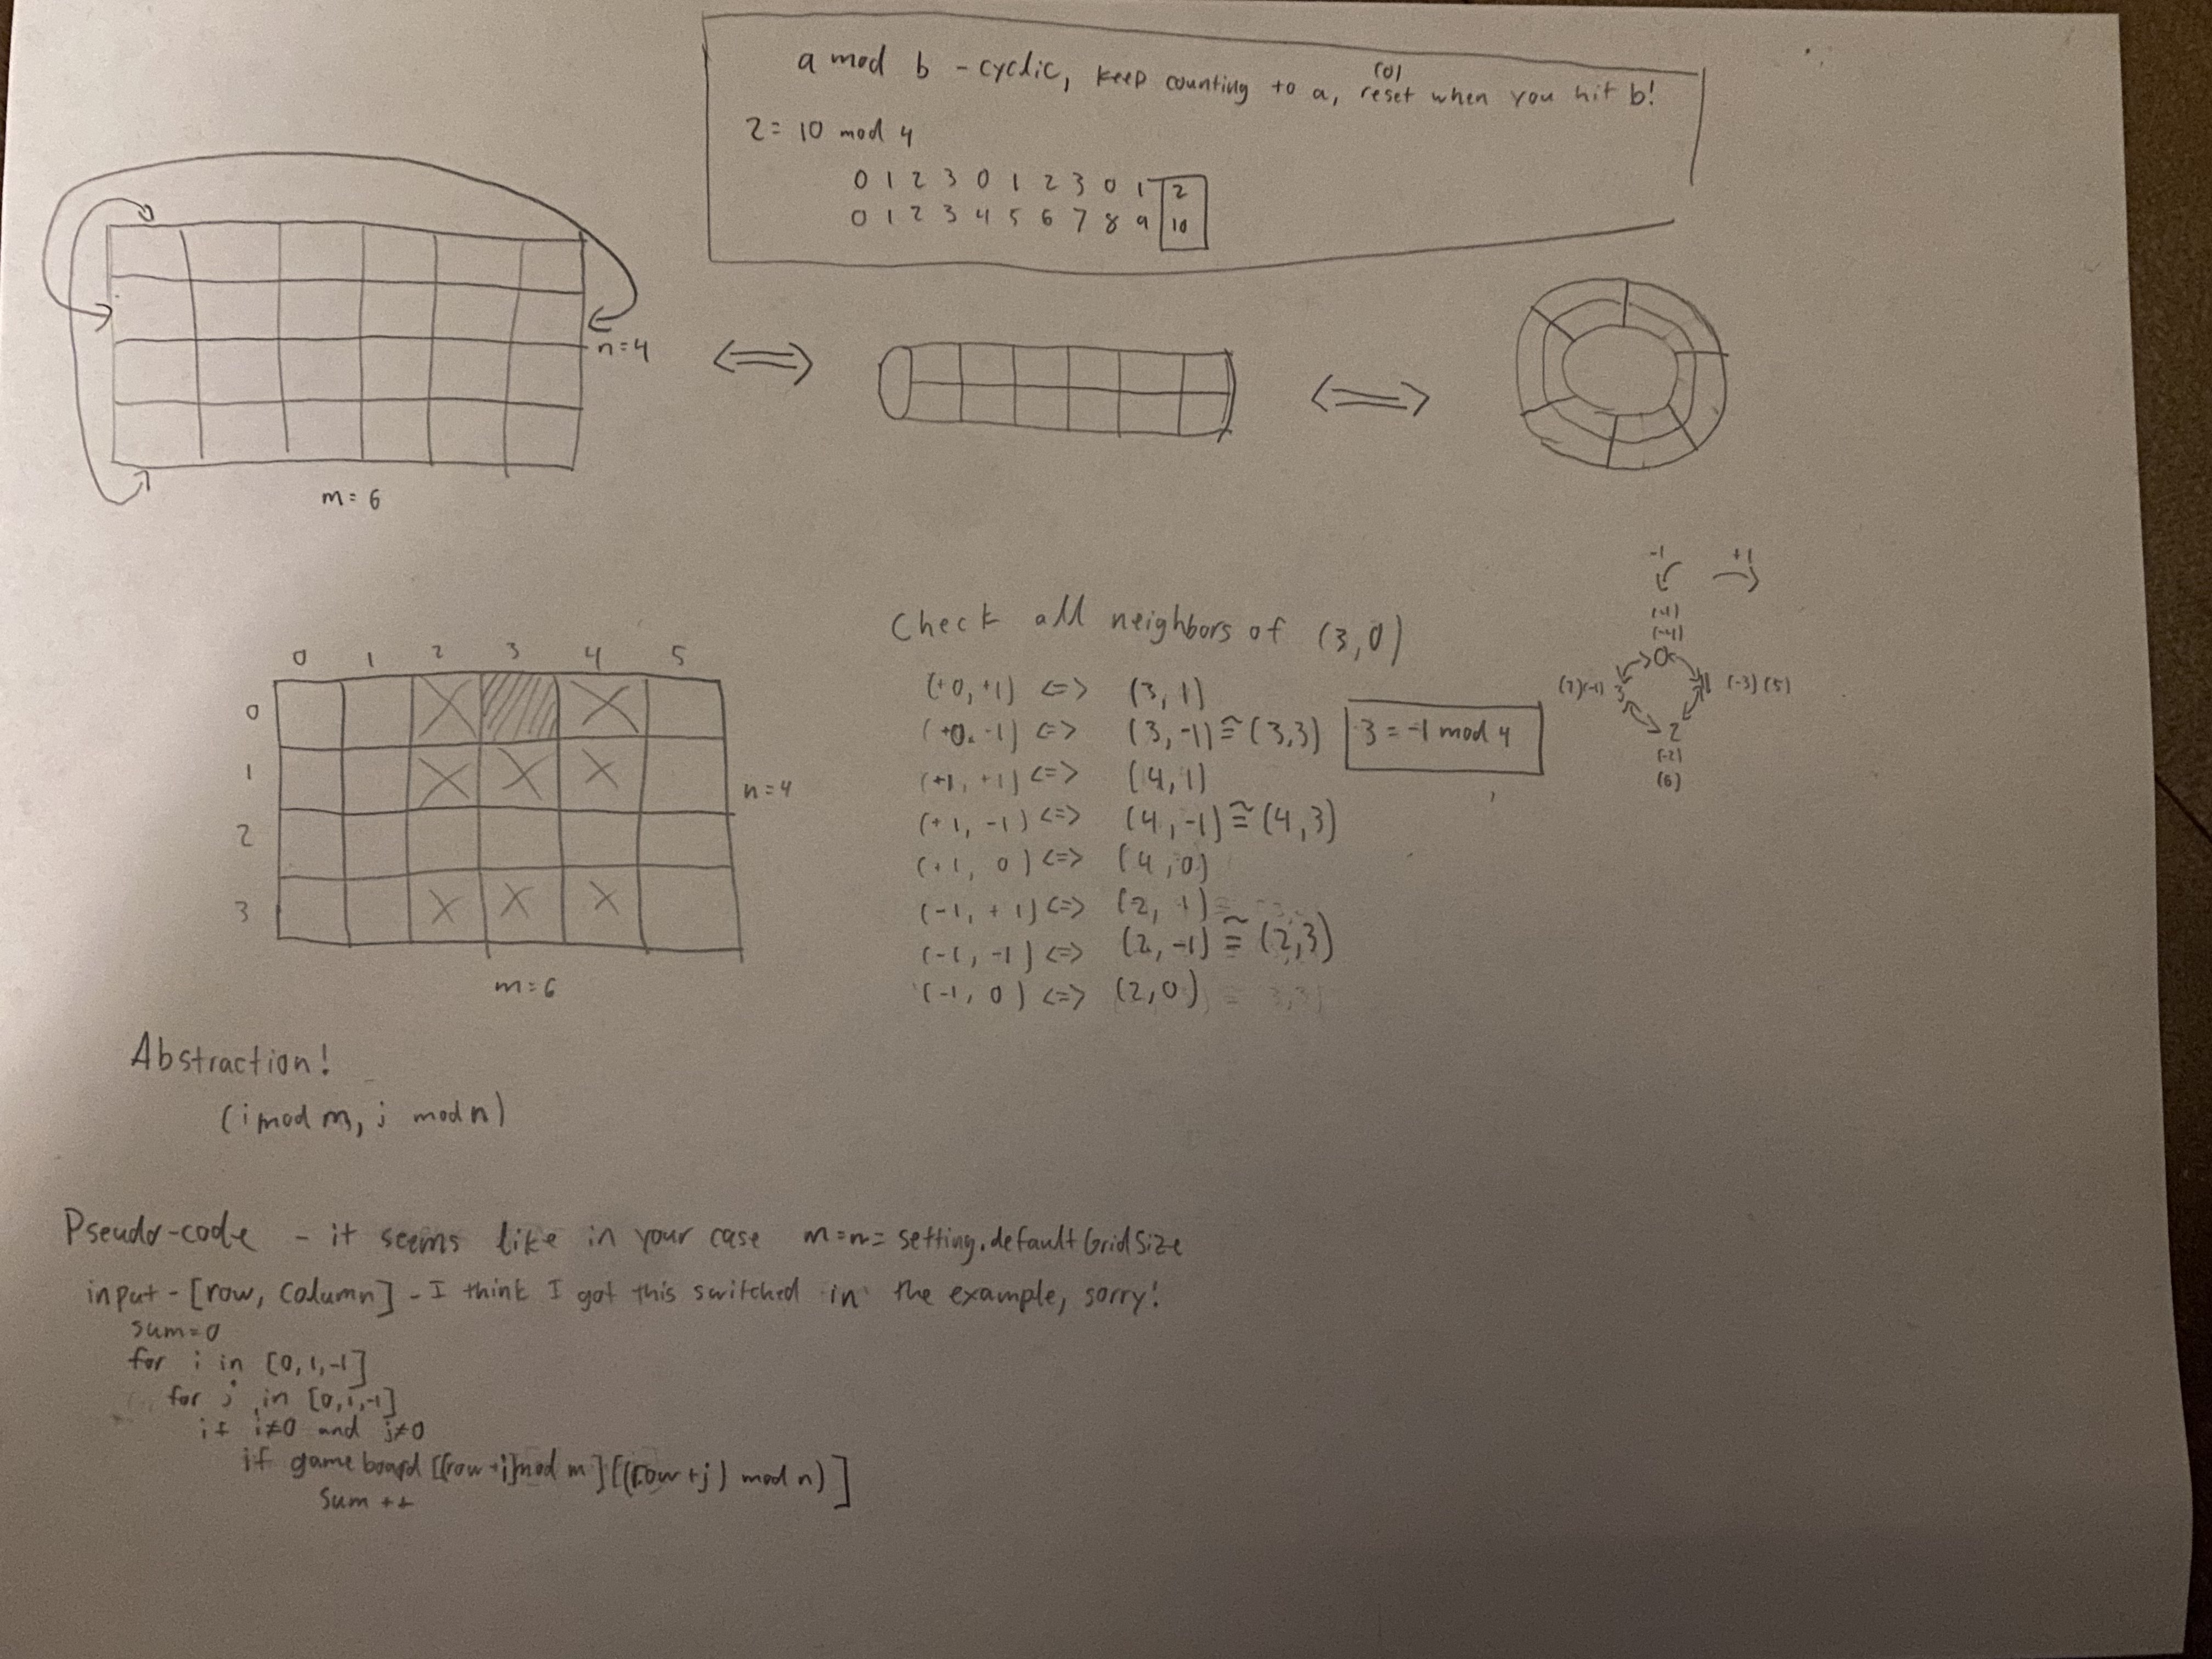 a mod b - cyclic, keep counting to a, reset when you hit b!
(0)
2 = 10 mod 4
0 1 2 3 0 1 2 3 0 1 2
0 1 2 3 4 5 6 7 8 9 10
n=4
m=6
0 1 2 3 4 5
0
1
2
3
n=4
m=6
Check all neighbors of (3,0)
(+0, +1) <=> (3, 1)
(+0, -1) <=> (3, -1) ≅ (3,3)
3 = -1 mod 4
(+1, +1) <=> (4, 1)
(+1, -1) <=> (4, -1) ≅ (4,3)
(+1, 0) <=> (4, 0)
(-1, +1) <=> (2, 1)
(-1, -1) <=> (2, -1) ≅ (2,3)
(-1, 0) <=> (2,0)
-1 +1
(-4)
0
(7)(-1) 3 1 (-3)(5)
2
(-2)
(6)
Abstraction!
(i mod m, j mod n)
Pseudo-code - it seems like in your case m=n= setting.defaultGridSize
input - [row, column] - I think I got this switched in the example, sorry!
sum=0
for i in [0,1,-1]
for j in [0,1,-1]
if i≠0 and j≠0
if gameboard[(row+i) mod m][((row+j) mod n)]
sum ++